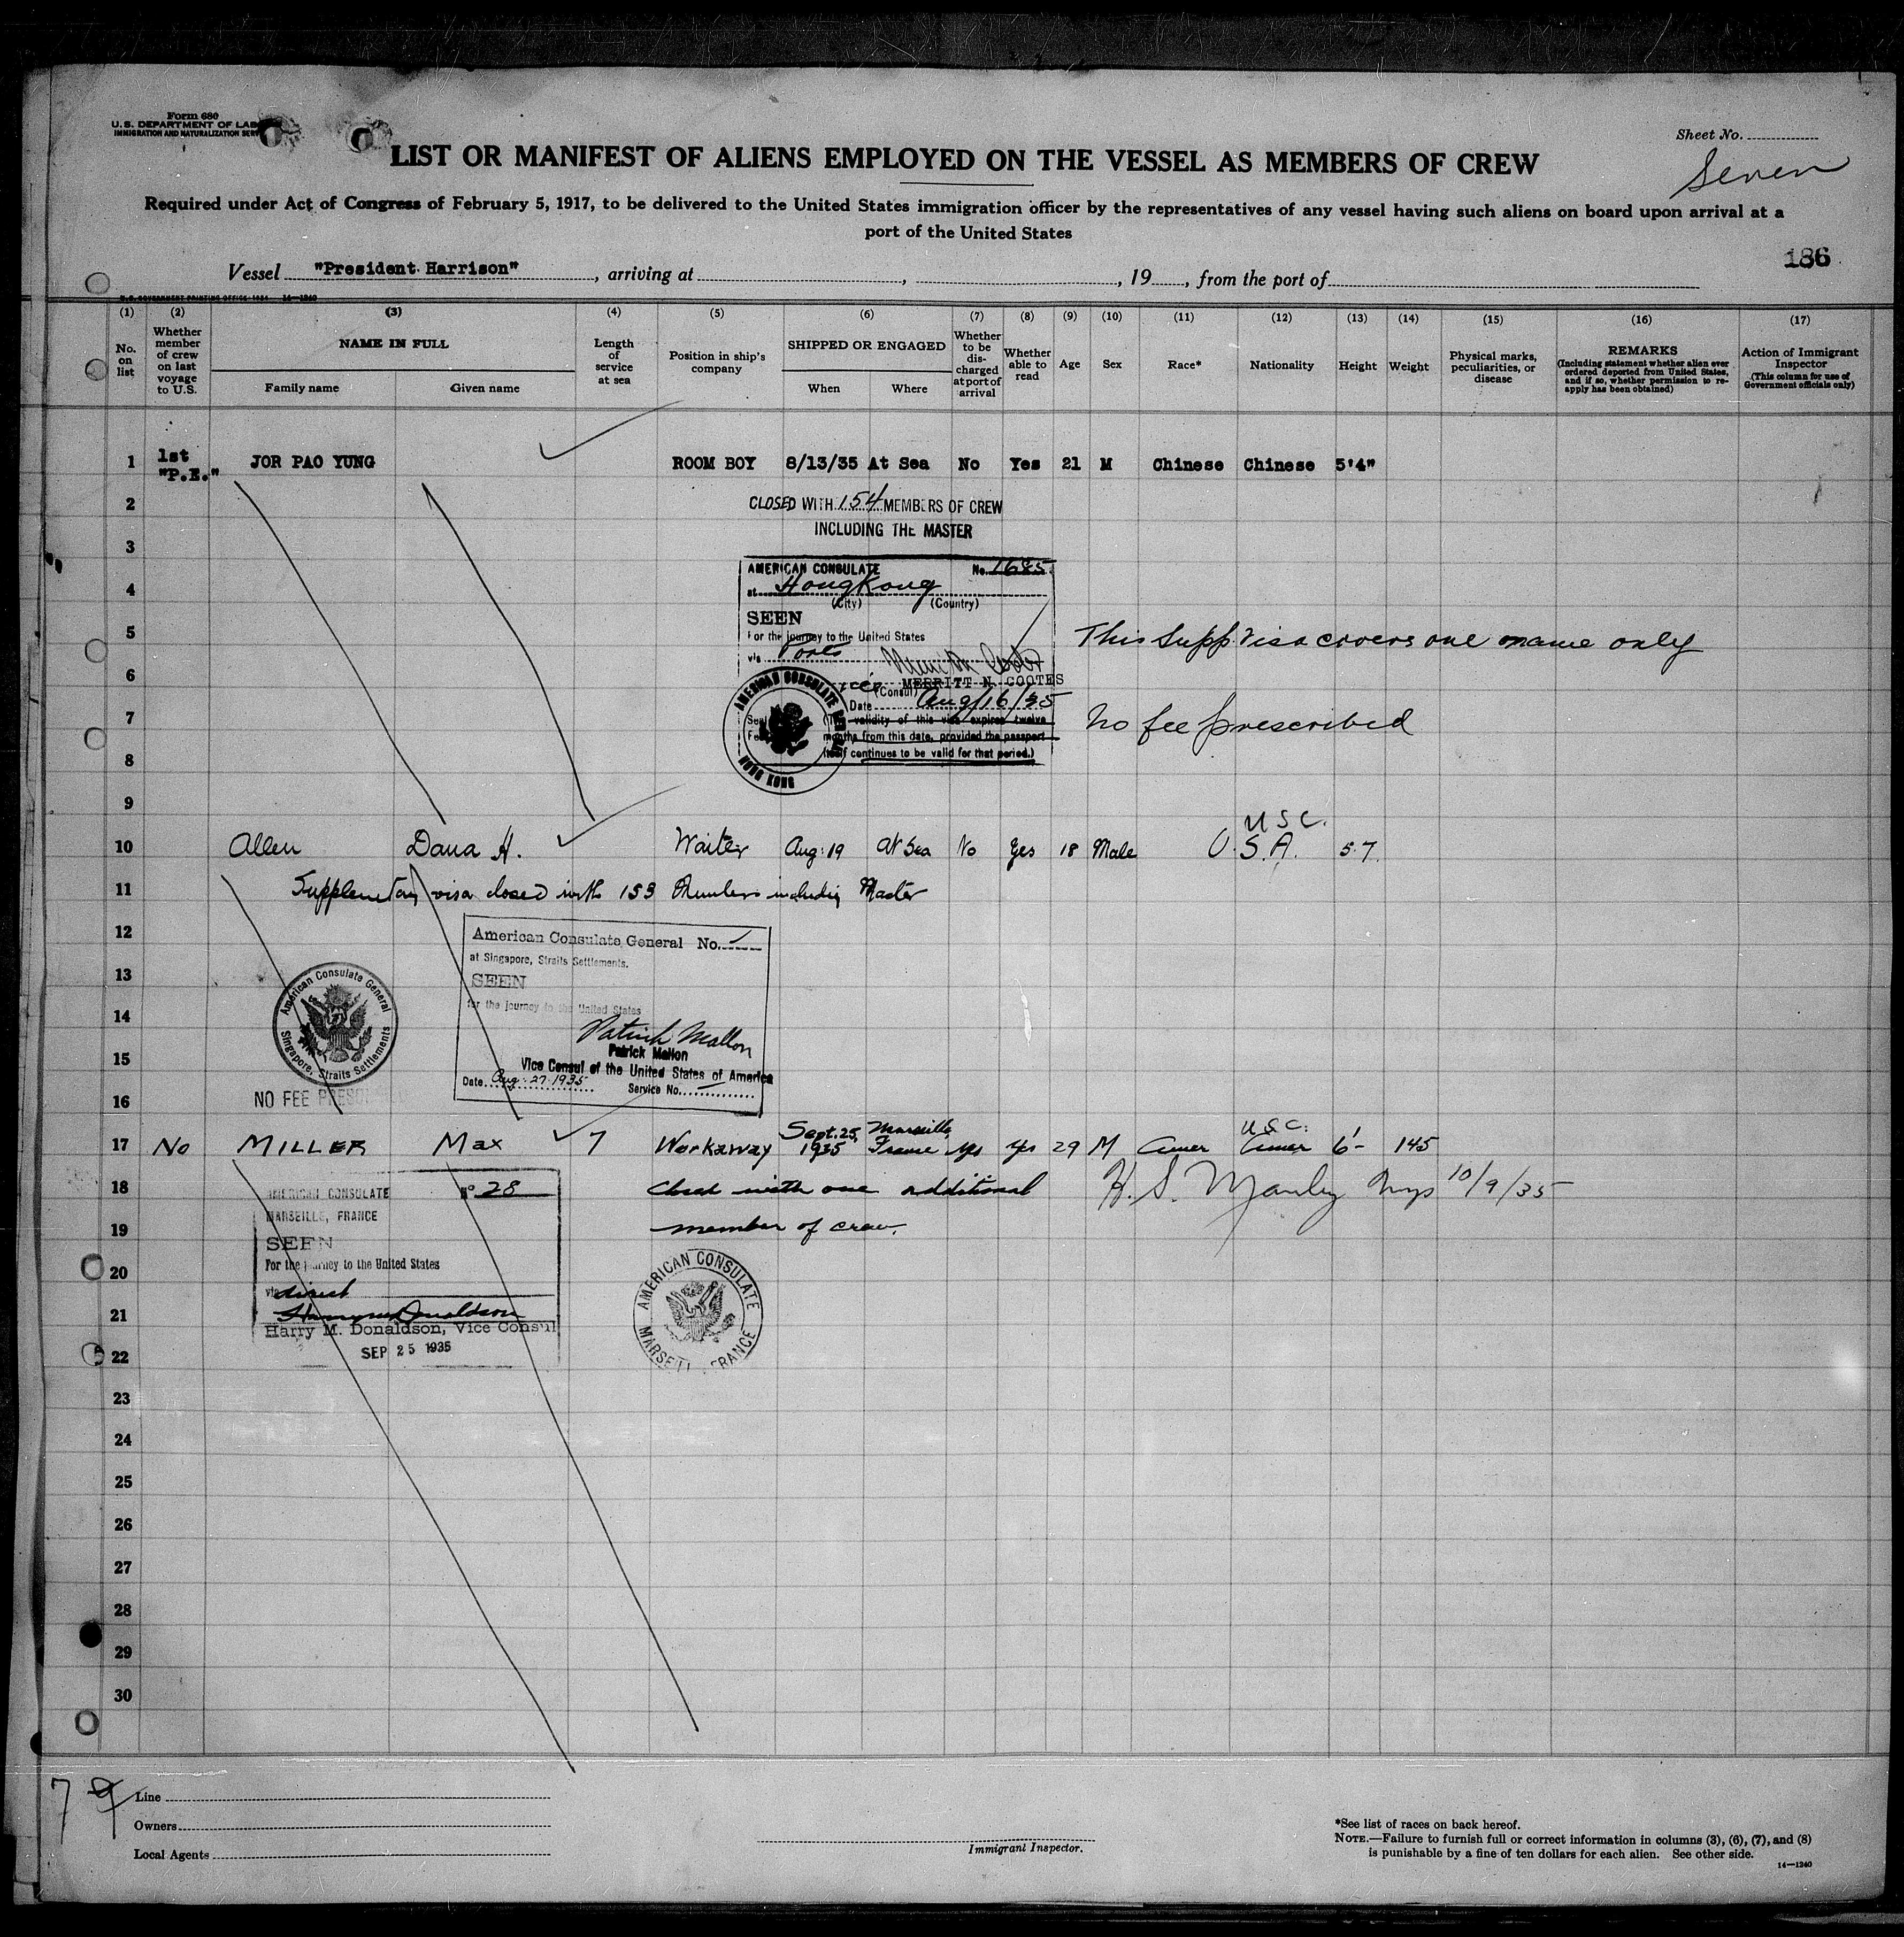 Form 680
U. S. DEPARTMENT OF LAB
IMMIGRATION AND NATURALIZATION SERV
Sheet No.
Seven
LIST OR MANIFEST OF ALIENS EMPLOYED ON THE VESSEL AS MEMBERS OF CREW
Required under Act of Congress of February 5, 1917, to be delivered to the United States immigration officer by the representatives of any vessel having such aliens on board upon arrival at a
port of the United States
186
Vessel "President Harrison", arriving at , , 19 , from the port of
U.S. GOVERNMENT PRINTING OFFICE: 1934 14—1240
(1) (2) (3) (4) (5) (6) (7) (8) (9) (10) (11) (12) (13) (14) (15) (16) (17)
No. on list
Whether member of crew on last voyage to U.S.
NAME IN FULL
Family name Given name
Length of service at sea
Position in ship's company
SHIPPED OR ENGAGED
When Where
Whether to be discharged at port of arrival
Whether able to read
Age
Sex
Race*
Nationality
Height
Weight
Physical marks, peculiarities, or disease
REMARKS
(Including statement whether alien ever ordered deported from United States, and if so, whether permission to reapply has been obtained)
Action of Immigrant Inspector
(This column for use of Government officials only)
1 1st "P.E." JOR PAO YUNG ROOM BOY 8/13/35 At Sea No Yes 21 M Chinese Chinese 5'4"
2 CLOSED WITH 154 MEMBERS OF CREW
INCLUDING THE MASTER
3
AMERICAN CONSULATE No. 1685
4 at HongKong
(City) (Country)
SEEN
5 For the journey to the United States
This Supp. Visa covers one name only
via Ports
6
MERRITT N. COOTES
(Consul)
Date Aug/16/35
7 No fee prescribed
(The validity of this visa expires twelve
months from this date, provided the passport
itself continues to be valid for that period.)
8
AMERICAN CONSULATE
HONG KONG
9
USC.
10 Allen Dana H. Waiter Aug: 19 At Sea No Yes 18 Male U.S.A. 5.7.
11 Supplementary visa closed with 153 Members including Master
12 American Consulate General No.
at Singapore, Straits Settlements.
13 SEEN
for the journey to the United States
American Consulate General
Singapore, Straits Settlements
14 Patrick Mallon
15 Patrick Mallon
Vice Consul of the United States of America
Date Aug. 27. 1935 Service No.
16 NO FEE
17 No MILLER Max 7 Workaway Sept. 25, 1935 Marseille, France yes yes 29 M Amer USC. Amer 6' 145
18 Closed with one additional H. S. Manley 10/9/35
AMERICAN CONSULATE No 28
MARSEILLE, FRANCE
19 member of crew.
SEEN
20 For the journey to the United States
via direct
21 Harry M. Donaldson
Harry M. Donaldson, Vice Consul
SEP 25 1935
AMERICAN CONSULATE
MARSEILLE FRANCE
22
23
24
25
26
27
28
29
30
7
Line
Owners
Local Agents
Immigrant Inspector.
*See list of races on back hereof.
NOTE.—Failure to furnish full or correct information in columns (3), (6), (7), and (8)
is punishable by a fine of ten dollars for each alien. See other side.
14—1240